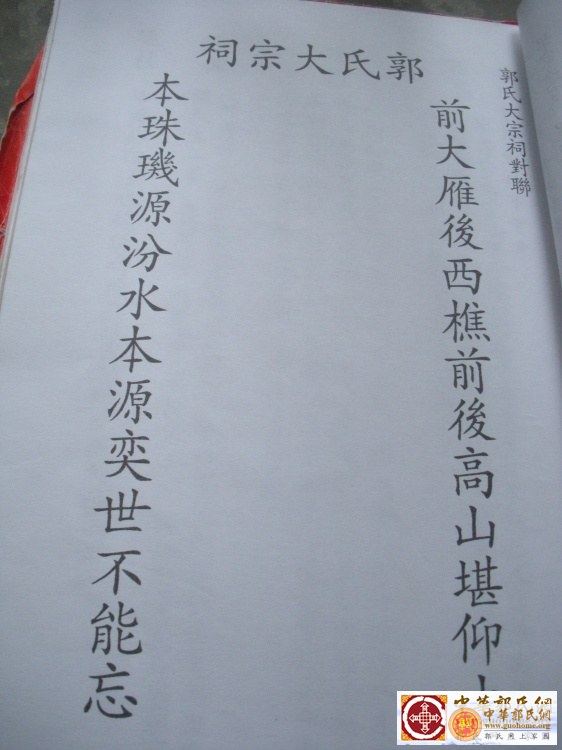 郭氏大宗祠對聯
郭氏大宗祠
前大雁後西樵前後高山堪仰
本珠璣源汾水本源奕世不能忘
中華郭氏網
中華郭氏網
www.guohome.org
郭氏網上家園